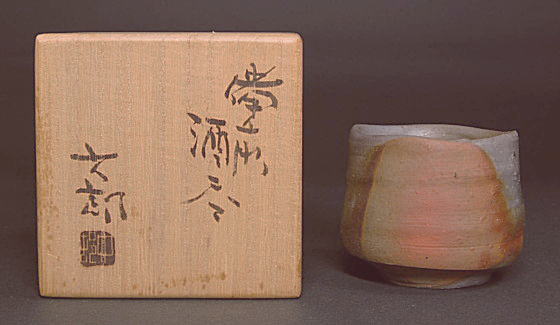 備前
酒呑
文郎